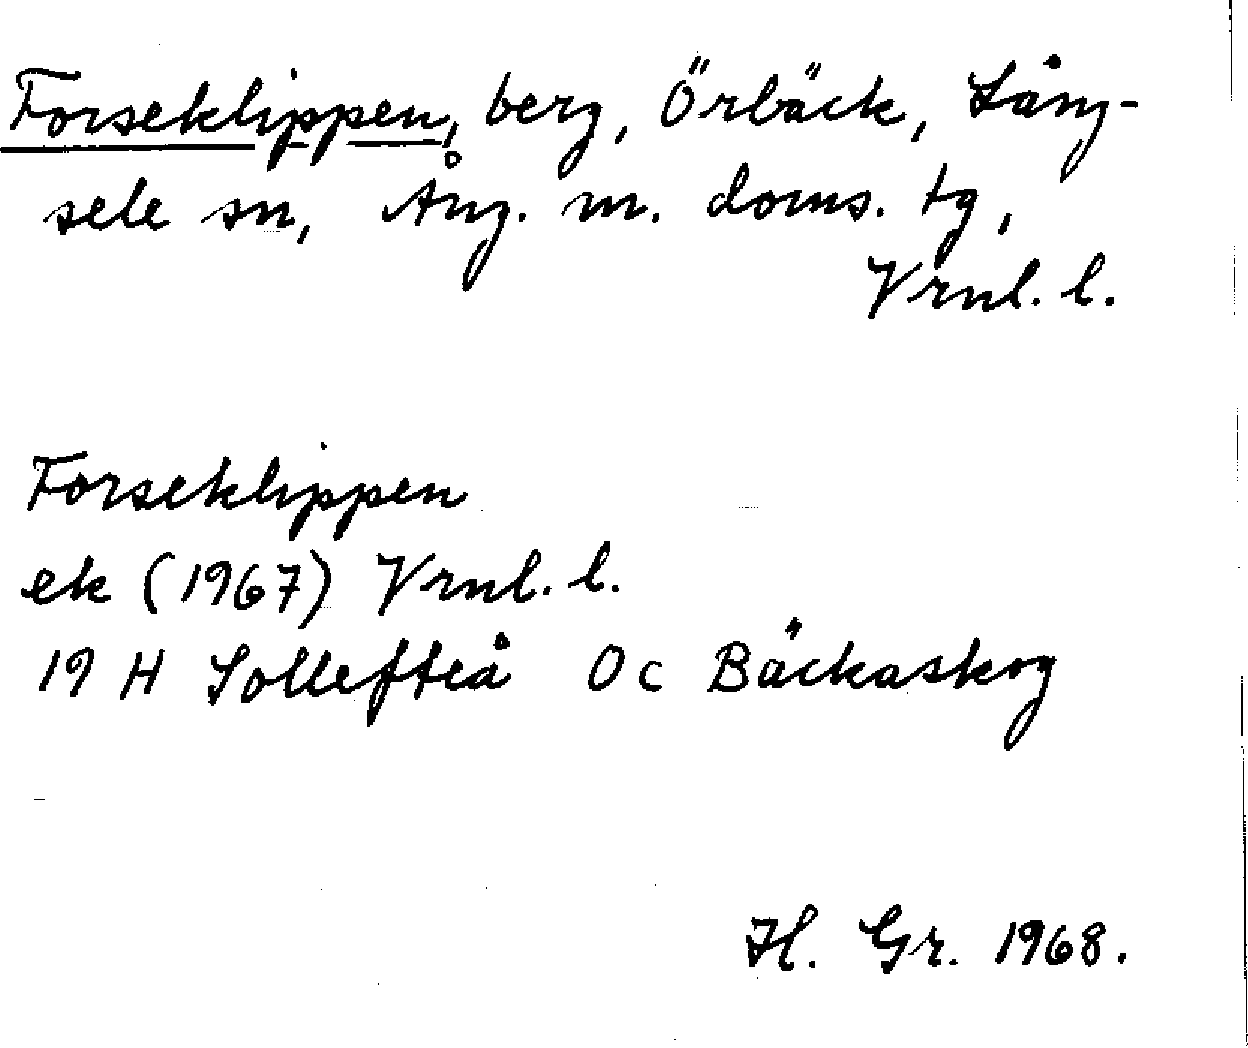 Forseklippen, berg, Örbäck, Lång-
sele sn, Ång. m. doms. tg,
Vrnl. l.
Forseklippen
ek (1967) Vrnl. l.
19 H Sollefteå 0 c Bäckaskog
H. Gr. 1968.